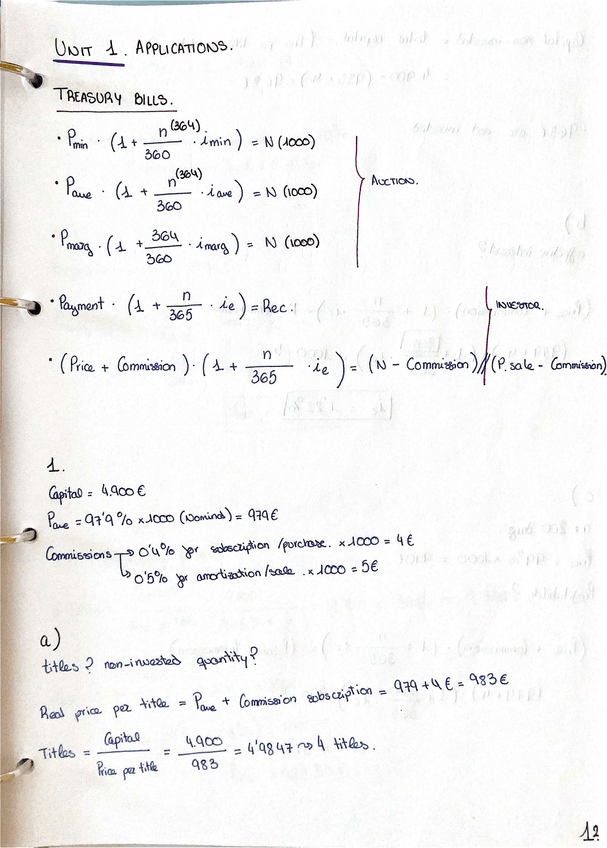 UNIT 1. APPLICATIONS.
TREASURY BILLS.
• Pmin · (1 + n(364)/360 · imin) = N (1000)
• Pave · (1 + n(364)/360 · iave) = N (1000)
AUCTION.
• Pmarg · (1 + 364/360 · imarg) = N (1000)
• Payment · (1 + n/365 · ie) = Rec.
INVESTOR.
• (Price + Commission) · (1 + n/365 · ie) = (N - Commission) // (P. sale - Commission)
1.
Capital = 4.900 €
Pave = 97'9 % × 1000 (Nominal) = 979 €
Commissions → 0'4% for subscription / purchase. × 1000 = 4 €
→ 0'5% for amortization / sale. × 1000 = 5 €
a)
titles? non-invested quantity?
Real price per title = Pave + Commission sobscription = 979 + 4 € = 983 €
Titles = Capital / Price per title = 4.900 / 983 = 4'9847 ~> 4 titles.
12